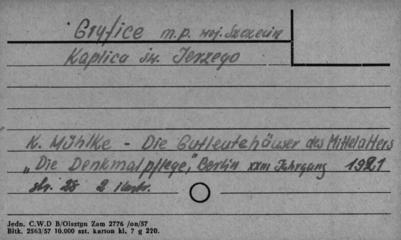 Gryfice m.p. woj. Szczecin
Kaplica św. Jerzego
K. Mühlke - Die Gutleutehäuser des Mittelalters
„Die Denkmalpflege", Berlin XXIII Jahrgang 1921
str. 25 2 ilustr.
Jedn. C.W.D B/Olsztyn Zam 2776 /on/57
Bltk. 2563/57 10.000 szt. karton kl. 7 g 220.